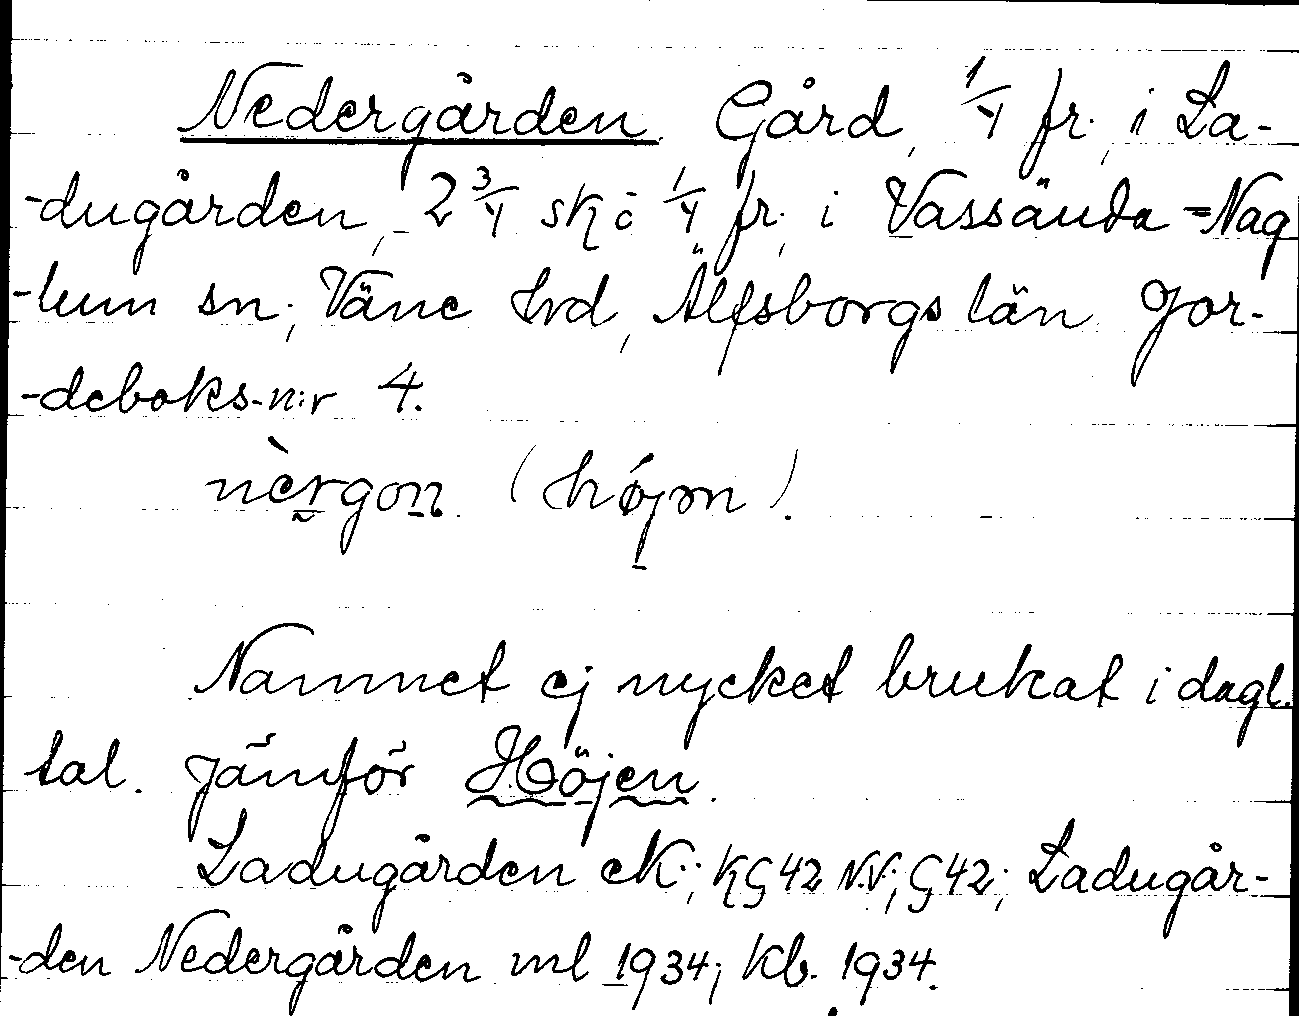 Nedergården. Gård, 1/4 fr. i La-
-dugården, 2 3/4 sk: 1/4 fr., i Vassända=Nag
-lum sn., Väne hrd, Älfsborgs län. Jor-
-deboks-n:r 4.
nèrgon. (hǿjən).
Namnet ej mycket brukat i dagl.
tal. Jämför Höjen.
Ladugården eK.; KG 42 N.V.; G 42; Ladugår-
-den Nedergården ml 1934; Kb. 1934.